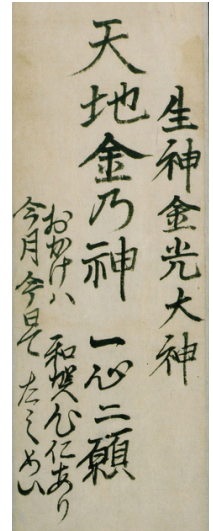 生神金光大神
天地金乃神 一心ニ願
おかけハ 和賀心仁あり
今月今日て たのめい